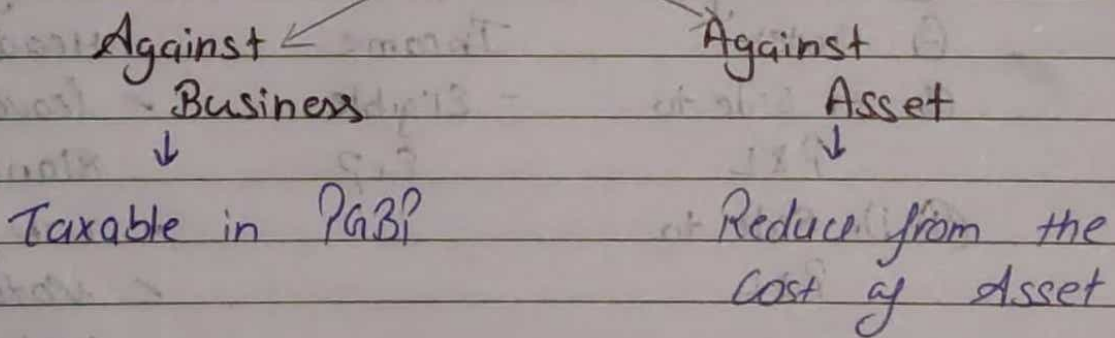 Against
Business
↓
Taxable in PGBP
Against
Asset
↓
Reduce from the
Cost of Asset